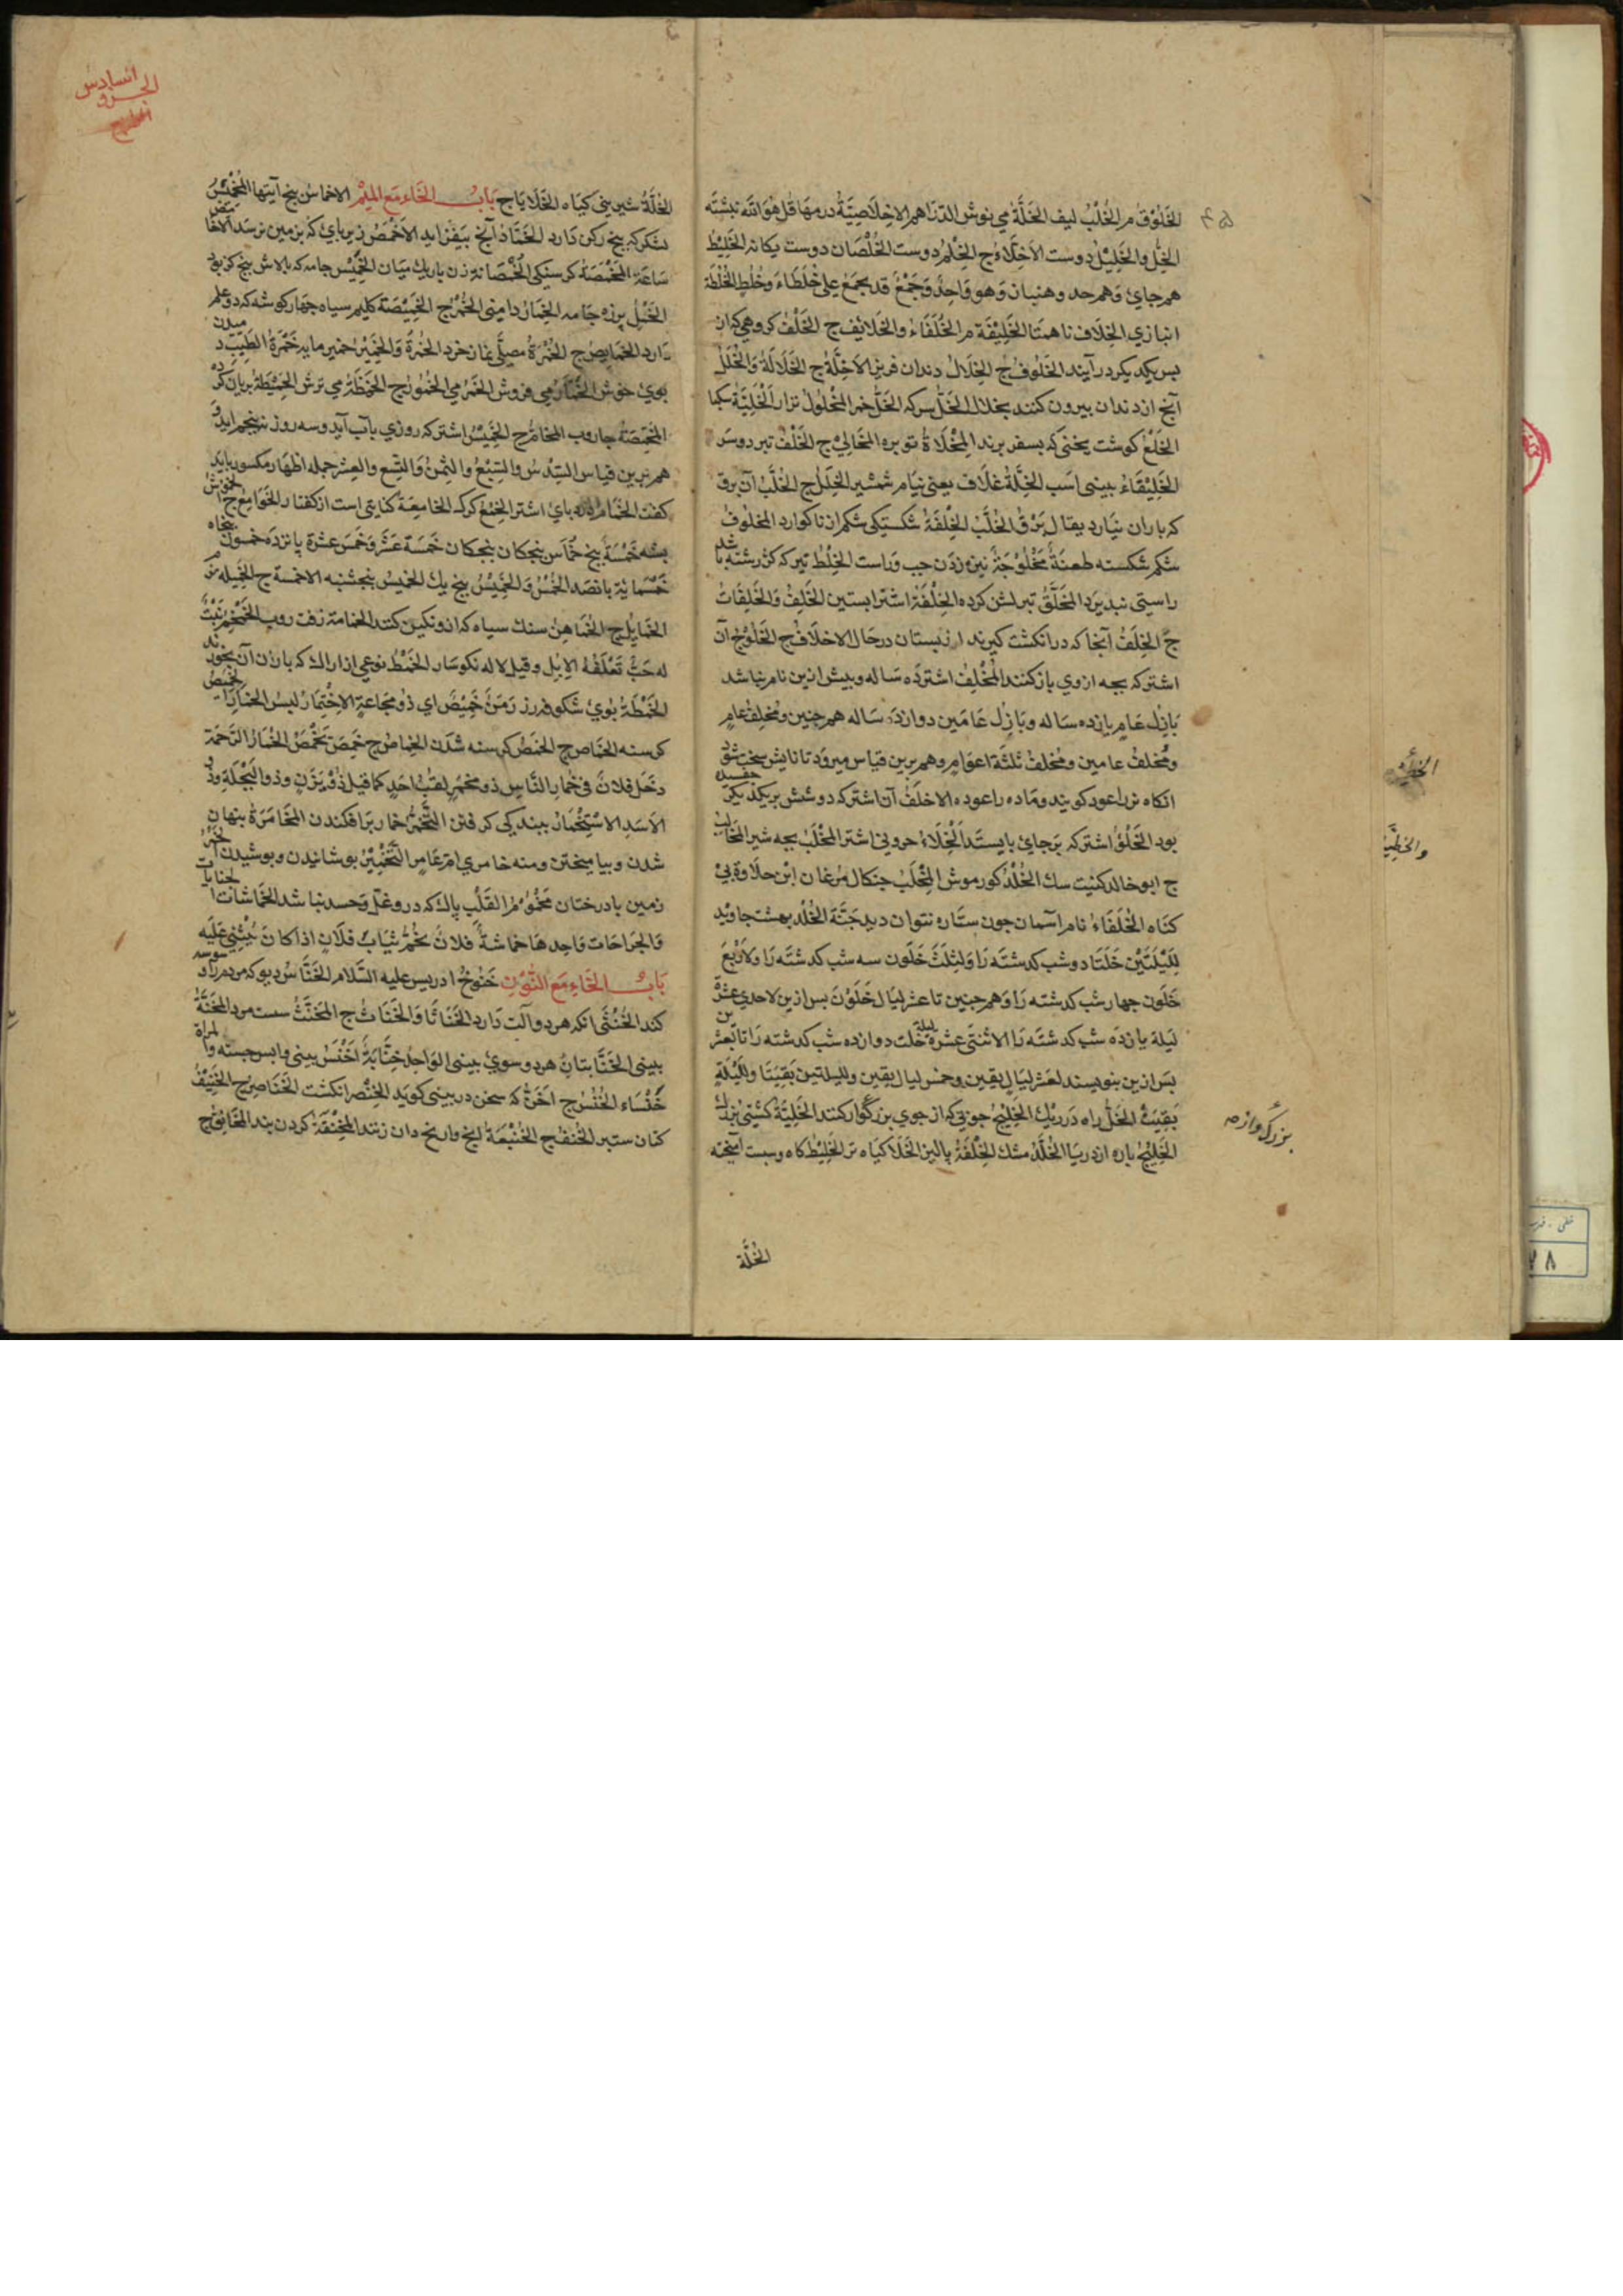 الخَلُوْقُ م الخُلْبُ ليف الخَلَّةُ می نوش الدّنَاهم الاِخْلَاصِیَّةُ درمهَا قُل هُوَ اللّٰه نبشته
الخِلُّ والخَلِیْلُ دوست الاَخِلَّاءُ ج الخِلْمُ دوست الخُلْصَان دوست یکانه الخَلِیْطُ
هم جایُ وَهم حد وهنبان وَهو وَاحِدٌ وَجَمْعٌ قد یجمَعُ علی خُلَطَاءَ وَخُلُطٍ الخُلْطَة
انبازی الخِلَاف ناهمتا الخَلِیْفَة م الخُلَفَاءُ والخَلَائِف ج الخَلْفُ کروهی که از
بس یکدیکر در آیند الخُلُوفُ ج الخِلَالُ دندان فریز الاَخِلَّةُ ج الخُلَالَةُ وَالخُلَلُ
آنچ از دندان بیرون کنند بخلال الخَلُّ سرکه الخَلُّ خمر المَخْلُولُ نزار الخَلِیَّةُ
الخَلْعُ کوشت یختی که بسفر برند المِخْلَاةُ توبره المَخَالِیْ ج الخَلْفُ تبر دوسَر
الخُلَیْقَاءُ بینی اسَب الخِلَّةُ غلَاف یعنی نیَام شمشیر الخِلَلُ ج الخُلَّبُ آن برق
که باران نیَارد یقال بَرْقُ الخُلَّبُ الخِلْفَةُ شکستیکی شکم از ناکوارد المخلُوفُ
شکم شکسته طعنَةٌ مَخْلُوْجَةٌ نیزه زدن جب وَراست الخِلْطُ تیر که کژ رشته باشد
راستی نبذیرد المُخَلَّقُ تیر لشن کرده الخِلْفَة اشتر ابستین الخَلِفُ وَالخَلِفَاتُ
ج الخِلْفُ آنجا که در انکشت کیرند از بستان درحَال الاخلَافُ ج الخَلُوْجُ آن
اشتر که بجه ازوی باز کنند المُخْلِفُ اشتر دَه سَاله وبیش ازین نام نباشد
بَازِلُ عَامٍ یازده سَاله وبَازِلُ عَامَین دوازدَه سَاله هم جنین ومُخلِفُ عامٍ
ومُخلفُ عامین ومُخلفُ ثلَثَة اعوَامٍ وهم برین قیاس میرود تا نابش سخت شود
انکاه نر را عود کویند وماده را عوده الاخلَفُ آن اشتر که دوشش بر یکدیکر خفسیده
بود الخَلُوُّ اشتر که بَر جایُ بایستَد الخِلَاءُ حرونی اشتر المِخْلَبُ بجه شیر المَخَالِبُ
ج ابو خالد کنیت سك الخُلْدُ کور موش المِخْلَبُ جنکال مرغان ابْن حلَاوة بی
کناه الخَلْقَاءُ نام آسمان جون ستَاره نتوان دید جَنَّة الخُلْد بهشت جاوید
لِلَیْلَتَیْن خَلَتَا دوشب کدشتَه رَا وَلِثلَثٍ خَلَون سه شب کدشتَه رَا وَلاَرْبَعٍ
خَلَون جهار شب کدشته رَا وَهم جنین تا عشر لیَالٍ خَلَوْنَ بس ازین لاحدیَ عشرَةَ
لیلة یازدَه شب کدشتَه رَا الاثنَتَی عشرة لیلة خَلَت دوازده شب کدشته رَا
بسَ ازین بنویسند لعشر لیَالٍ بقین وخمس لیال بقِین ولِلَیلتین بَقِیَتَا ولِلَیْلَةٍ
بَقِیَتْ الخَلُّ راه دَر ریك الخَلِیْجُ جوئی که از جوی بزرکوار کنند الخَلِیَّةُ کشتی بزرك
الخَلِیْجُ باره از دریَا الخَلَدُ مشك الخِلْفَةُ بالیز الخَلَا کیَاه تر الخَلِیْطُ کاه وسبست آمیخته
الخُلَّة
بزرك وازه
السادس
الجزو
الخُلَّةُ شیرینی کیَاه الخَلَایَا ج بَابُ الخَاء مَع المِیْمِ الاخماسُ بنج آیتها الخَمِیْسُ
لشکر که بنج رکن دَارد الخَمَّاذُ آنج بیَفزاید الاَخْمَصُ زیر بای که بزمین نرسَد
سَاعَة المَخْمَصَةُ کرسنکی الخُمْصَانَة زن باریك میَان الخَمِیْسُ جامه که بالاش بنج کز بود
الخَمْلُ برزه جَامه الخِمَارُ دامنی الخُمُرُ ج الخَمِیْصَة کلیم سیاه جهارکوشه که دوعلم
دَارد الخمَایِصُ ج الخُمْرَةُ مصلَّی نماز خرد الخُمْرَةُ وَالخَمِیْرُ خمیر مایه خَمْرَةُ الطِّیبِ
بویُ خوش الخَمَّارُ می فروش الخَمْرُ می الخُمُورُ ج الخَمْطَةُ می ترش الخَمِیْطَةُ بریان کرده
المِخَمَّةُ جاروب المخامُّ ج الخِمْسُ اشتر که روزی بآب آید وسه روز نه بنجم اید
هم برین قیاس السِّدْسُ والسِّبْعُ والثِمْنُ وَالتِّسع والعِشر جمله اظهار مکسور
کفت الخُمَام بای اشتر الخِمْعُ کرك الخامِعَة کنایتی است از کفتار الخَوَامِعُ ج الخَمُوْشُ
بشه خَمْسَةٌ بنج خُمَاسَ بنجکان بنجکان خَمسَةَ عَشَرَ وَخَمسَ عشرة بانزدَه خمسُونَ بنجاه
خَمْسُمائة بانصَد الخُمْسُ وَالخَمِیْسُ بنج یك الخمیسُ بنجشنبه الاخمسَة ج الخَمِیْلَة
الخمَایِلُ ج الخُمَاهِنُ سنك سیاه که ازو نکین کنند الخمامَة رفت روب الخَمْخِمُ نَبْتٌ
له حَبٌّ تَعْلَفُهُ الاِبِل وقیل لاله نکوسَار الخَمْطُ نوعی از اراك که بار آن بخورند
الخَمْطَةُ بویُ شکوفه رز زَمَنٌ خَمِیْصٌ ای ذُو مجَاعةٍ الاِخْتِمَارُ لبسُ الخمار الخَمِیْصُ
کرسنه الخماص ج الخمَصُ کرسنه شدن الخِماصُ ج خَمِصَ یَخْمَصُ الخُمَارُ الزَحْمَة
دخَل فلانٌ فی خُمار النَّاسِ ذو مخمرٍ لقبُ احَدٍ کما قیل ذُوْ یَزَنٍ وذو البَجْلَةِ وذُو
الاَسَدِ الاسْتِخْمَارُ ببندکی کرفتن التَّخَمُّرُ خمار برافکندن المخَامَرَةُ بنهان
شدن وبیامیختن ومنه خامری امّ عَامر التَّخْمِیْرُ بوشانیدن وبوشیدن الخَمَرُ
زمین با درختان مَخْمُوْمُ القَلْب پاك که درو غلّ وَحسد نباشد الخُمَاشَاتُ الجنایات
وَالجرَاحَات وَاحِدهَا خماشَةٌ فلانٌ یخُمُّ ثیَابَ فلَانٍ اذا کَانَ یُثْنِی عَلَیه
بَابُ الخَاءِ مَع النُّوْنِ خَنُوْخُ ادریس علیه السَّلام الخَنَّاسُ دیو که مردم را وسوسه
کند الخُنْثَی آنکه هر دو آلت دَارد الخَنَاثَا وَالخِنَاثُ ج المُخَنَّثُ سست مرد المَخَنَّةُ
بینی الخنَّابَتَانِ هر دو سویُ بینی الوَاحِدُ خِنَّابَةٌ اَخْنَسُ بینی وابس جسته وامراة
خَنْسَاء الخُنْسُ ج اَخَنُّ که سخن در بینی کوید الخِنْصر انکشت الخَنَاصِرُ ج الخَنِیْفُ
کتان ستبر الخُنُفُ ج الخُنْبُعَةُ آنج وا زنخدان زنند المِخْنَقَةُ کردن بند المَخَانِقُ ج